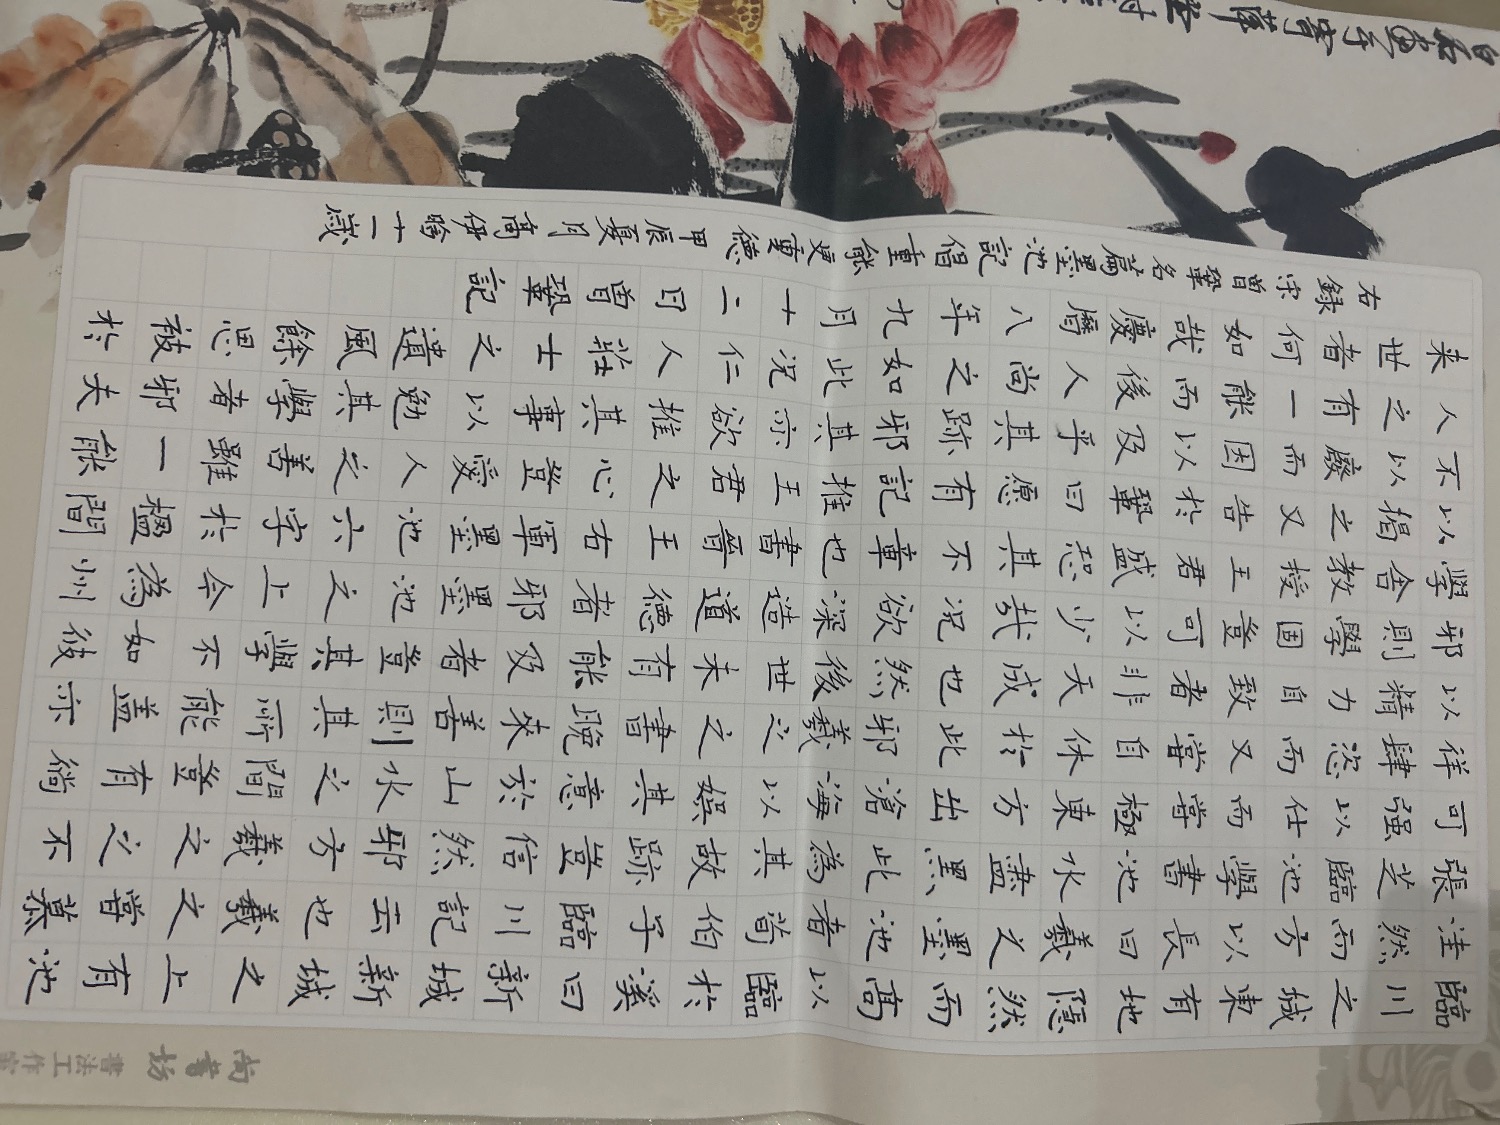 臨川之城東有地隱然而高以臨於溪曰新城新城之上有池
洼然而方以長曰羲之墨池者荀伯子臨川記云也羲之嘗慕
張芝臨池學書池水盡黑此為其故跡豈信然邪方羲之之不
可强以仕而嘗極東方出滄海以娛其意於山水之間豈有徜
徉肆恣而又嘗自休於此邪羲之之書晚来善則其所能盖亦
以精力自致者非天成也然後世未有能及者豈其學不如彼
邪則學固豈可以少哉況欲深造道德者邪墨池之上今為州
學舍教授王君盛恐其不章也書晉王右軍墨池六字於楹間
以揭之又告於君鞏曰愿有記推王君之心豈愛人之善雖一能
不以廢而因以及乎其跡邪其亦欲推其事以勉其學者邪夫
人之有一能而後人尚之如此況仁人莊士之遺風餘思被於
来世者何如哉慶曆八年九月十二日曾鞏記
右錄宋曾鞏名篇墨池記倡重能更重德甲辰夏月高伊晗十一歲
尚書坊 書法工作室